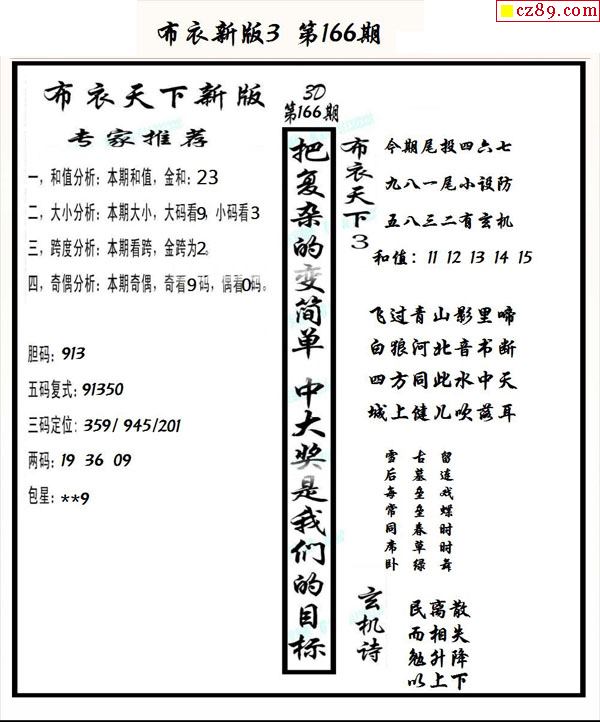 cz89.com
布衣新版3 第166期
布衣天下新版
专家推荐
一，和值分析：本期和值，金和：23
二，大小分析：本期大小，大码看9，小码看3
三，跨度分析：本期看跨，金跨为2。
四，奇偶分析：本期奇偶，奇看9码，偶看0码。
胆码：913
五码复式：91350
三码定位：359/ 945/201
两码：19 36 09
包星：**9
3D
第166期
把复杂的变简单 中大奖是我们的目标
布衣天下3
今期尾投四六七
九八一尾小设防
五八三二有玄机
和值：11 12 13 14 15
飞过青山影里啼
白狼河北音书断
四方同此水中天
城上健儿吹落耳
雪后每常同席卧
古墓垒垒春草绿
留连戏蝶时时舞
玄机诗
民离散
而相失
勉升降
以上下